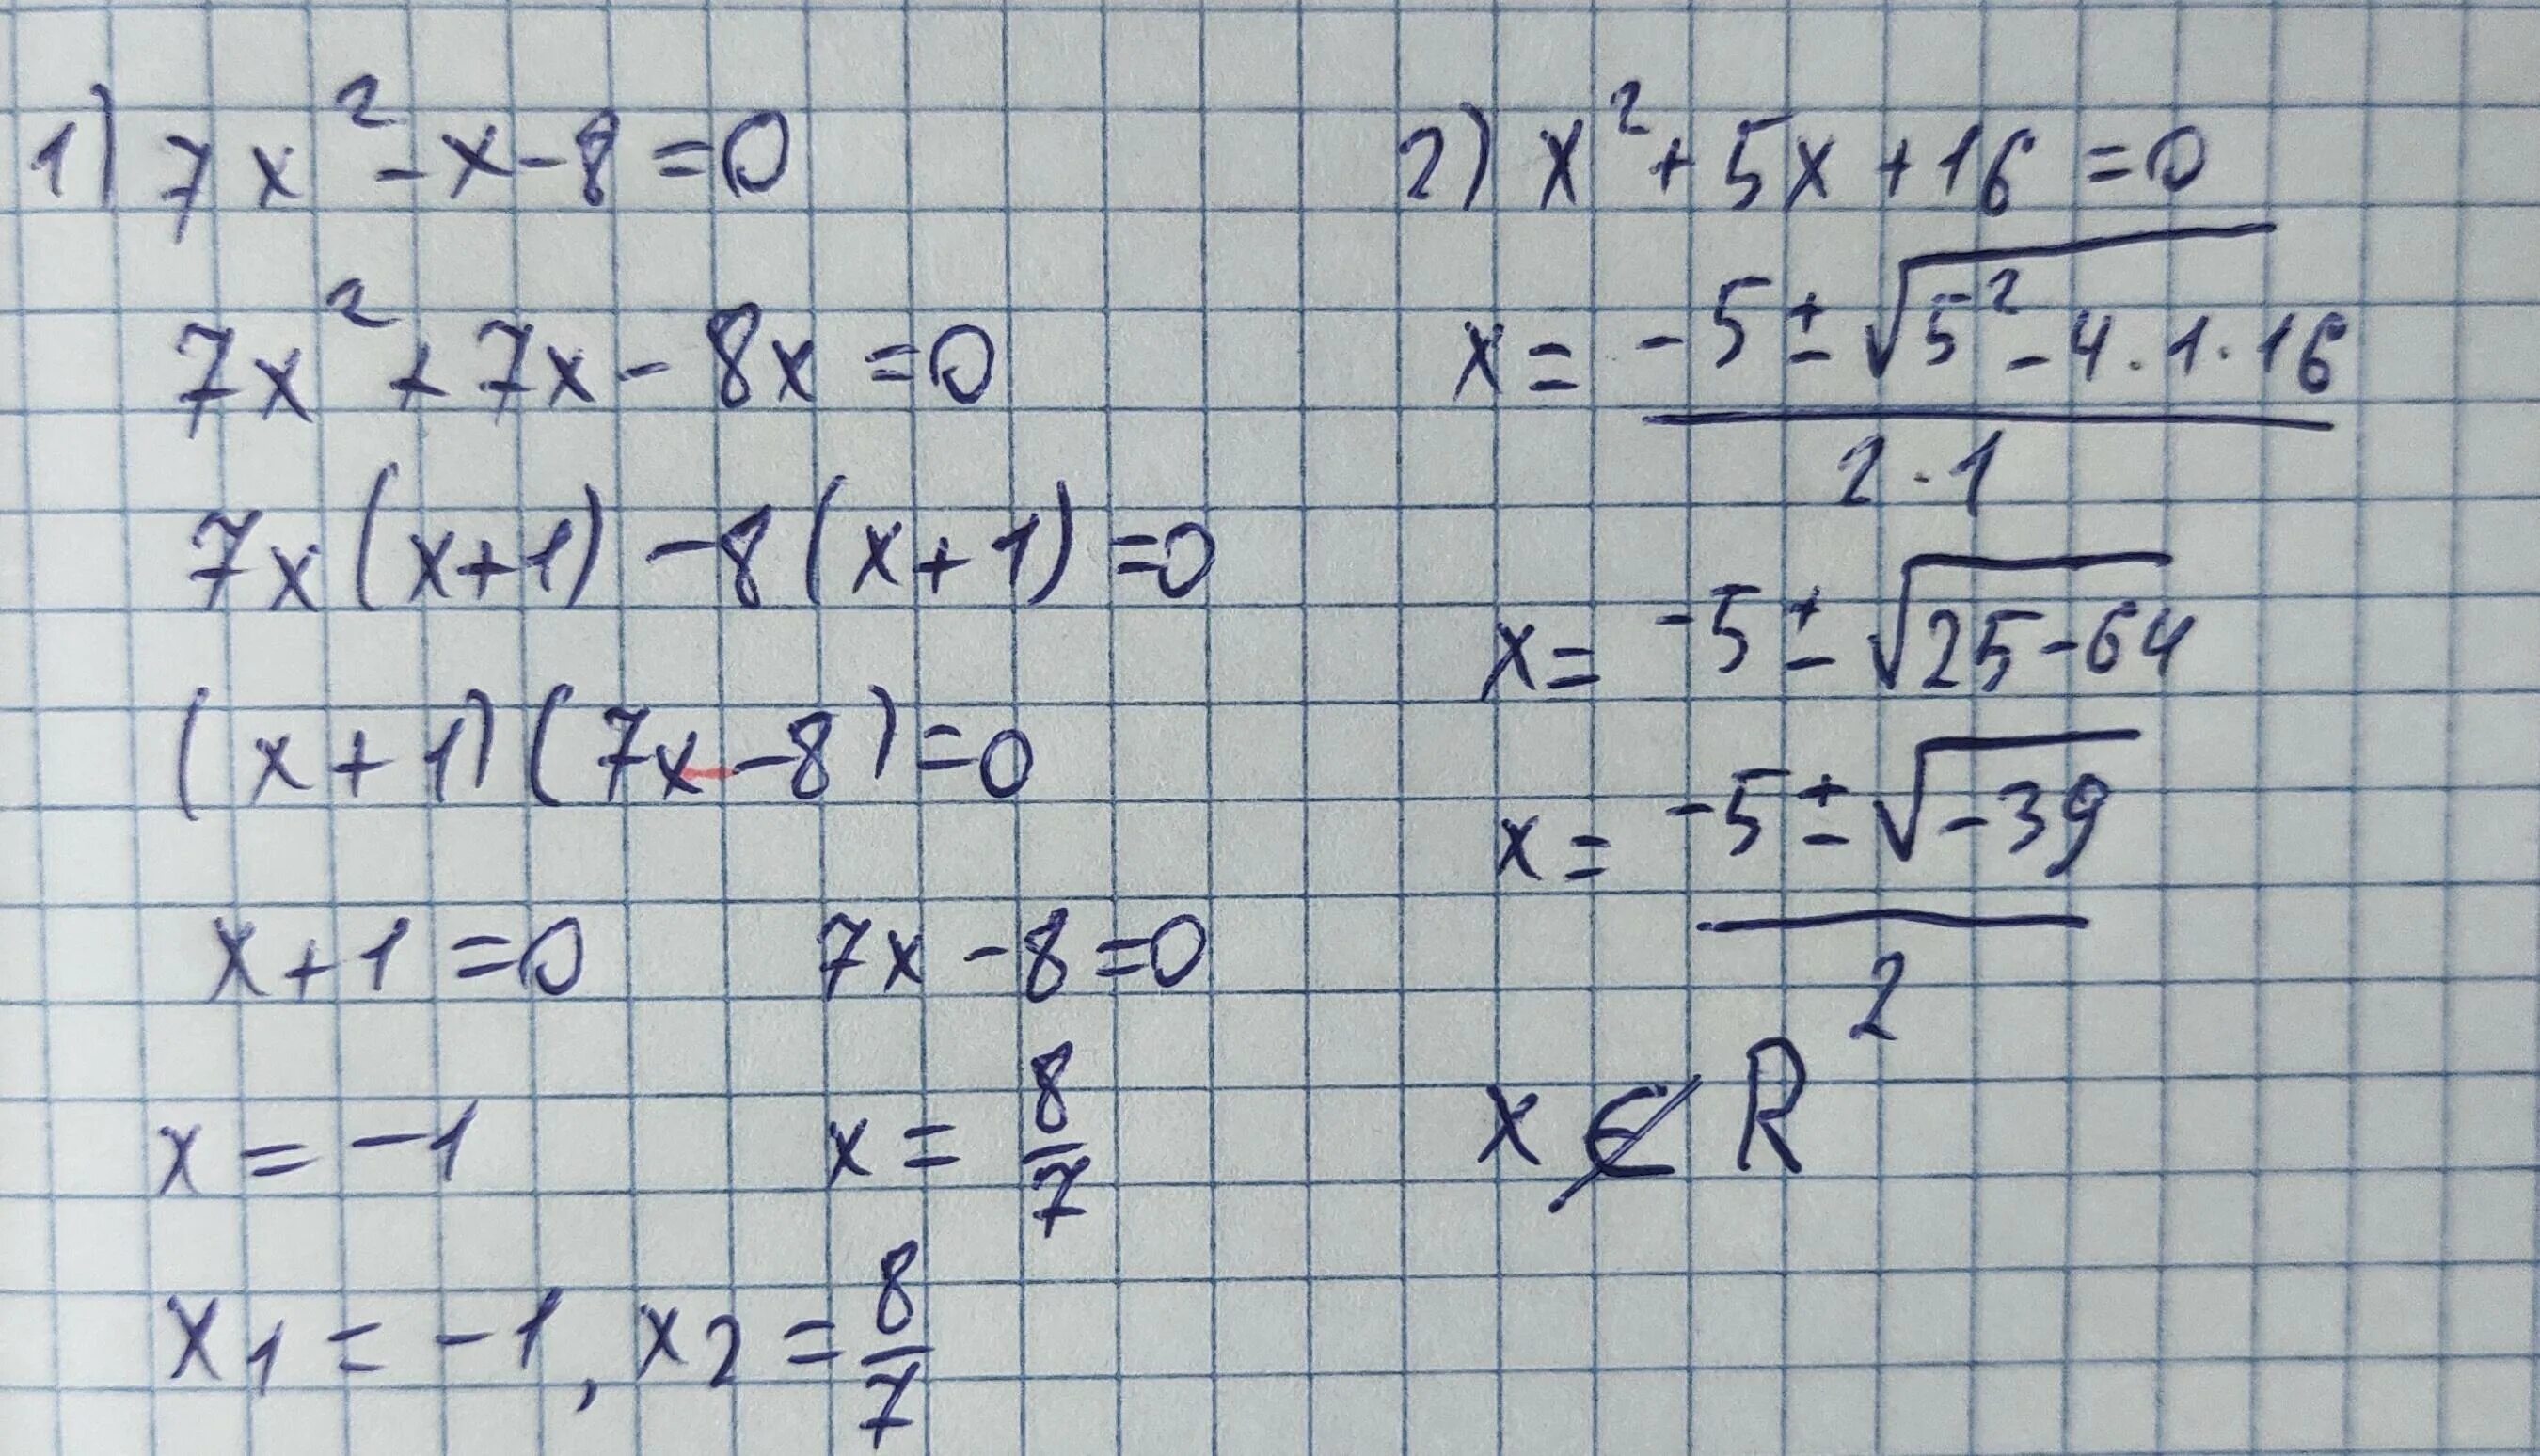 1) 7x² - x - 8 = 0
7x² + 7x - 8x = 0
7x(x+1) - 8(x+1) = 0
(x+1)(7x-8) = 0
x+1=0 7x-8=0
x = -1 x = 8/7
x₁ = -1, x₂ = 8/7
2) x² + 5x + 16 = 0
x = (-5 ± √5² - 4·1·16)/(2·1)
x = -5 ± √25-64
x = (-5 ± √-39)/2
x ∉ R